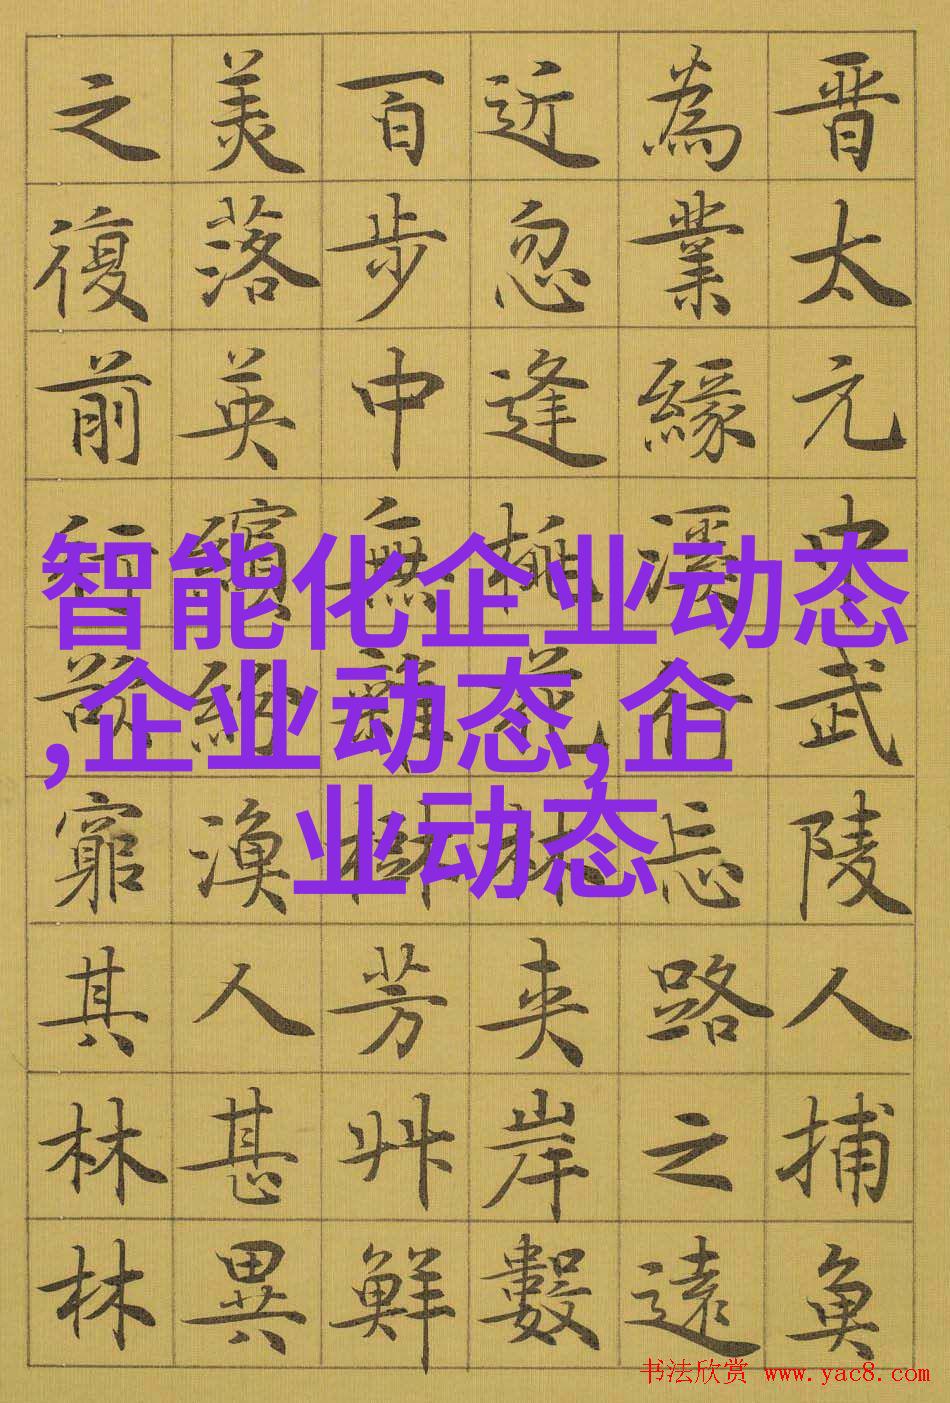 晋太元中武陵人捕魚
為業緣溪行忘路之遠
近忽逢桃花林夾岸數
百步中無雜樹芳艸鮮
美落英繽紛漁人甚異
之復前行欲窮其林林
智能化企业动态
,企业动态,企
业动态
书法欣赏 www.yac8.com